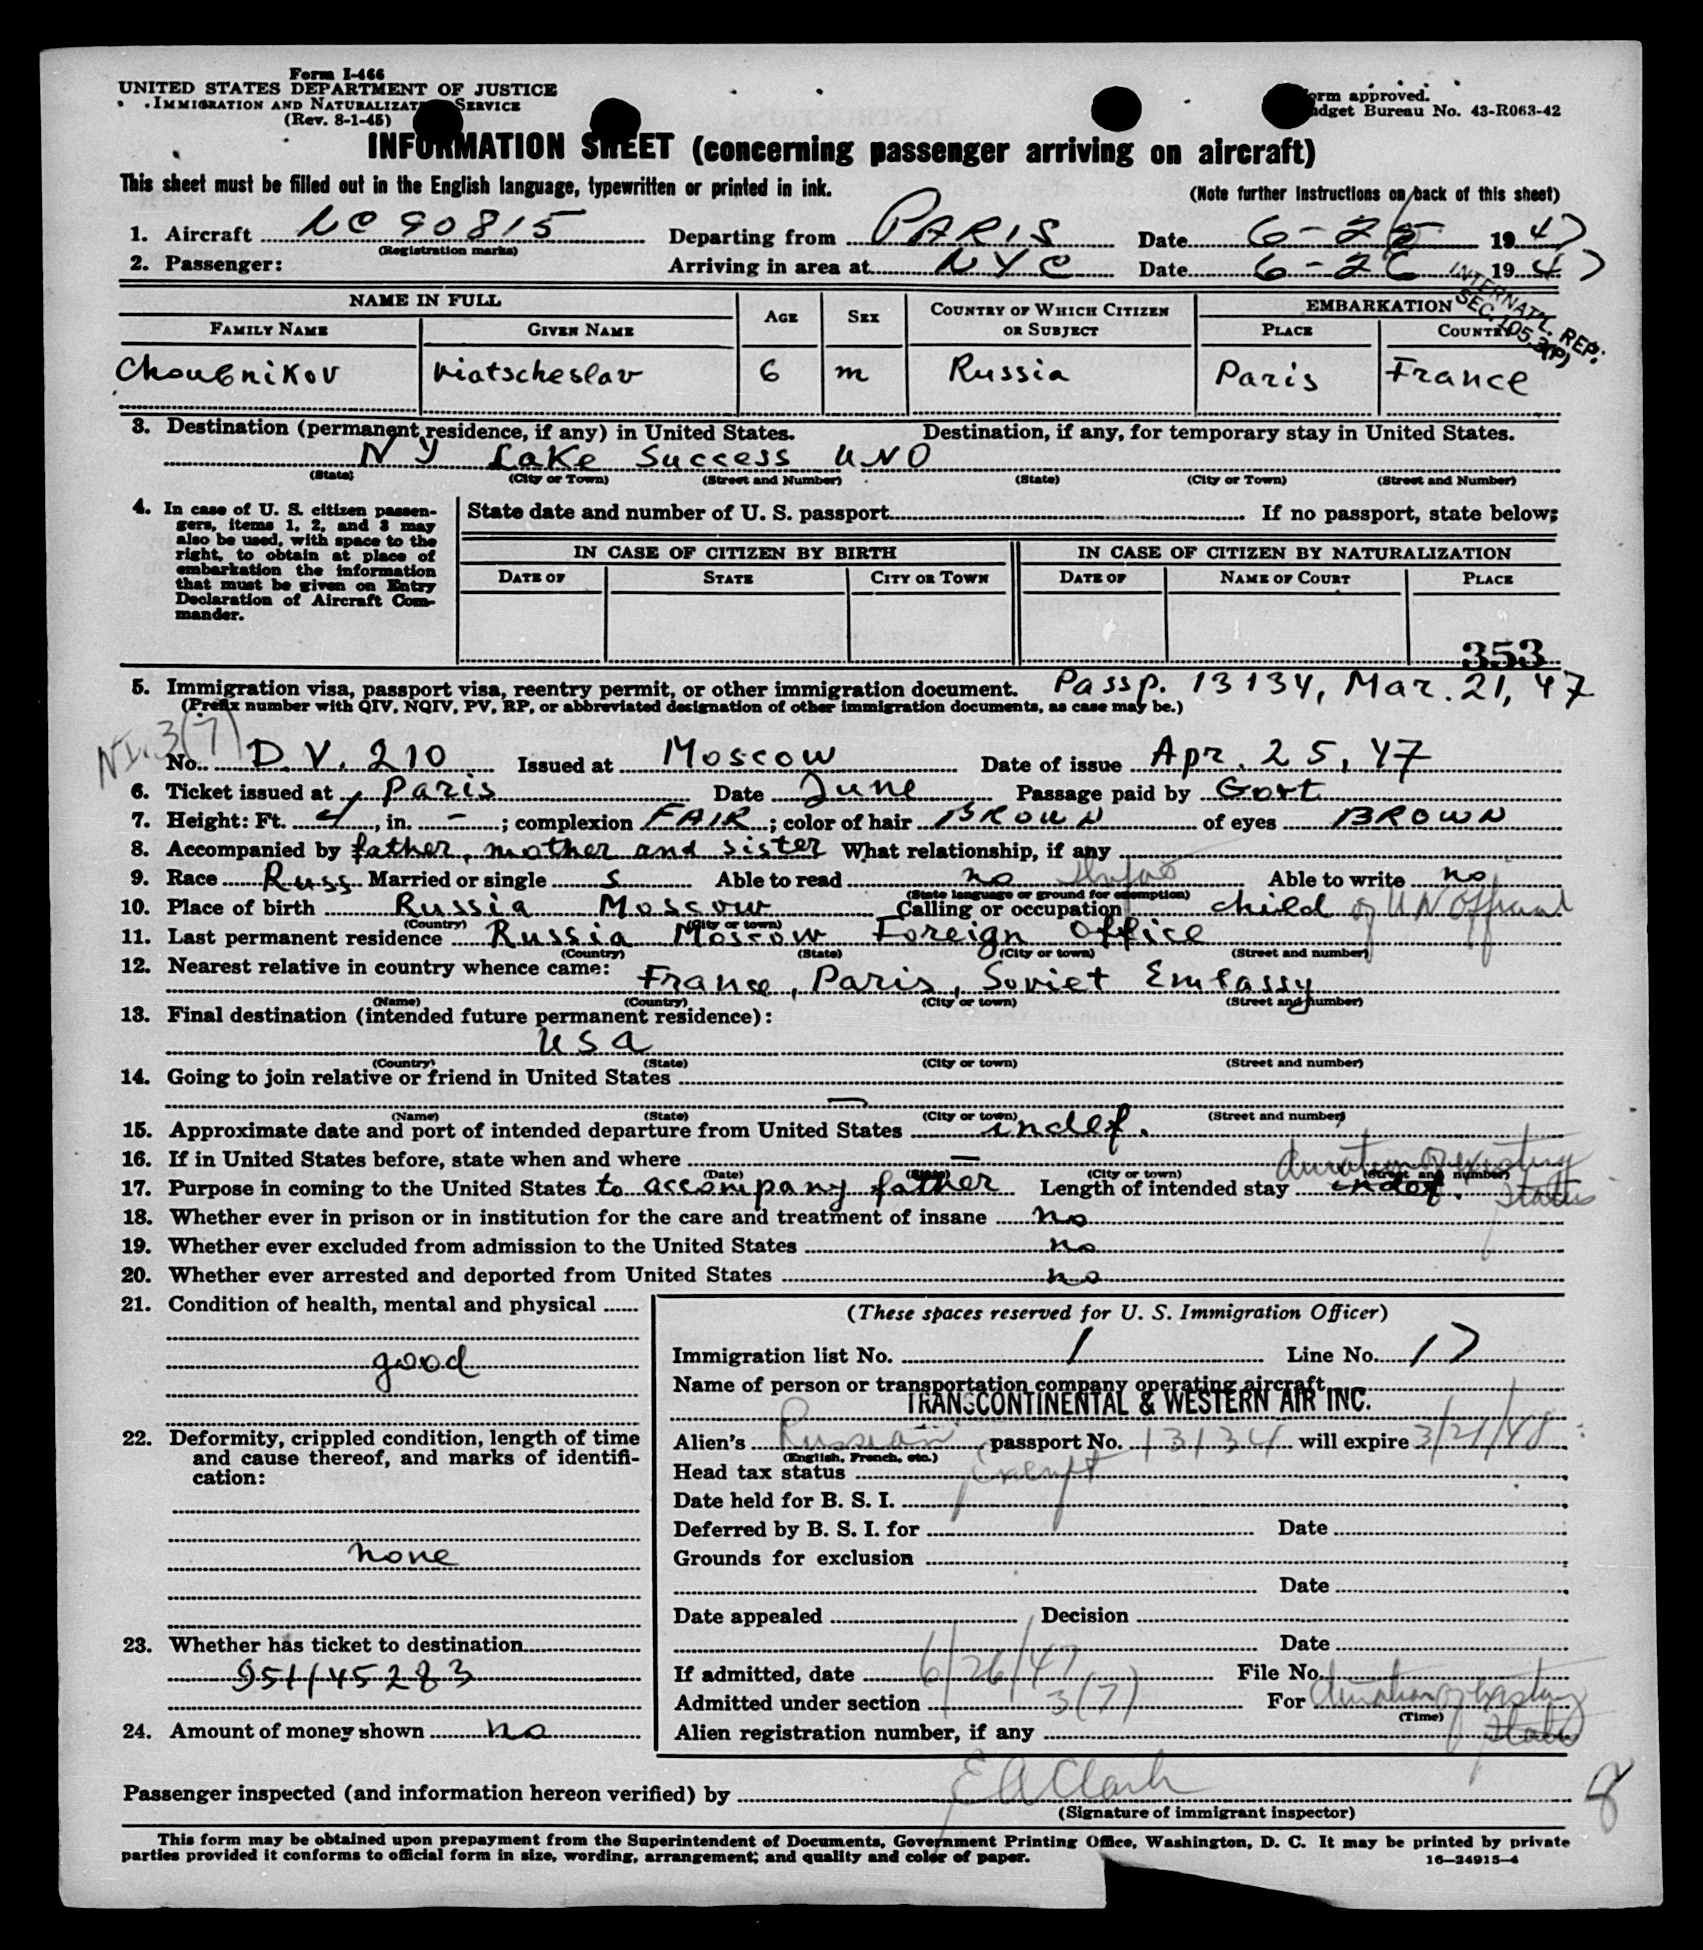 Form I-466
UNITED STATES DEPARTMENT OF JUSTICE
IMMIGRATION AND NATURALIZAT SERVICE
(Rev. 8-1-45)
orm approved.
udget Bureau No. 43-R063-42
INFORMATION SHEET (concerning passenger arriving on aircraft)
This sheet must be filled out in the English language, typewritten or printed in ink.
(Note further instructions on back of this sheet)
1. Aircraft NC 90815 Departing from PARIS Date 6-25 1947
(Registration marks)
2. Passenger: Arriving in area at NYC Date 6-26 1947
INTERNAT'L. REP.
SEC. 105.3(P)
NAME IN FULL AGE SEX COUNTRY OF WHICH CITIZEN OR SUBJECT EMBARKATION
FAMILY NAME GIVEN NAME PLACE COUNTRY
Choubnikov Viatscheslav 6 m Russia Paris France
3. Destination (permanent residence, if any) in United States. Destination, if any, for temporary stay in United States.
NY Lake Success UNO
(State) (City or Town) (Street and Number) (State) (City or Town) (Street and Number)
4. In case of U. S. citizen passen-
gers, items 1, 2, and 3 may
also be used, with space to the
right, to obtain at place of
embarkation the information
that must be given on Entry
Declaration of Aircraft Com-
mander.
State date and number of U. S. passport If no passport, state below:
IN CASE OF CITIZEN BY BIRTH IN CASE OF CITIZEN BY NATURALIZATION
DATE OF STATE CITY OR TOWN DATE OF NAME OF COURT PLACE
353
5. Immigration visa, passport visa, reentry permit, or other immigration document. Passp. 13134, Mar. 21, 47
(Prefix number with QIV, NQIV, PV, RP, or abbreviated designation of other immigration documents, as case may be.)
3(7)
No. D.V. 210 Issued at Moscow Date of issue Apr. 25, 47
6. Ticket issued at Paris Date June Passage paid by Govt
7. Height: Ft. 4, in. -; complexion FAIR; color of hair BROWN of eyes BROWN
8. Accompanied by father, mother and sister What relationship, if any
9. Race Russ Married or single s Able to read no Able to write no
(State language or ground for exemption)
10. Place of birth Russia Moscow Calling or occupation child of UN Official
(Country) (City or town)
11. Last permanent residence Russia Moscow Foreign Office
(Country) (State) (City or town) (Street and number)
12. Nearest relative in country whence came: France, Paris, Soviet Embassy
(Name) (Country) (City or town) (Street and number)
13. Final destination (intended future permanent residence):
USA
(Country) (State) (City or town) (Street and number)
14. Going to join relative or friend in United States
—
(Name) (State) (City or town) (Street and number)
15. Approximate date and port of intended departure from United States indef.
16. If in United States before, state when and where —
(Date) (State) (City or town) (Street and number)
duration of existing status
17. Purpose in coming to the United States to accompany father Length of intended stay indef.
18. Whether ever in prison or in institution for the care and treatment of insane no
19. Whether ever excluded from admission to the United States no
20. Whether ever arrested and deported from United States no
21. Condition of health, mental and physical
good
22. Deformity, crippled condition, length of time
and cause thereof, and marks of identifi-
cation:
none
23. Whether has ticket to destination
951/145283
24. Amount of money shown no
(These spaces reserved for U. S. Immigration Officer)
Immigration list No. 1 Line No. 17
Name of person or transportation company operating aircraft
TRANSCONTINENTAL & WESTERN AIR INC.
Alien's Russian passport No. 13134 will expire 3/21/48
(English, French, etc.)
Head tax status Exempt
Date held for B. S. I.
Deferred by B. S. I. for Date
Grounds for exclusion
Date
Date appealed Decision
Date
If admitted, date 6/26/47 File No.
Admitted under section 3(7) For duration of existing status
(Time)
Alien registration number, if any
Passenger inspected (and information hereon verified) by E A Clark
(Signature of immigrant inspector)
8
This form may be obtained upon prepayment from the Superintendent of Documents, Government Printing Office, Washington, D. C. It may be printed by private
parties provided it conforms to official form in size, wording, arrangement; and quality and color of paper.
16—24915-4